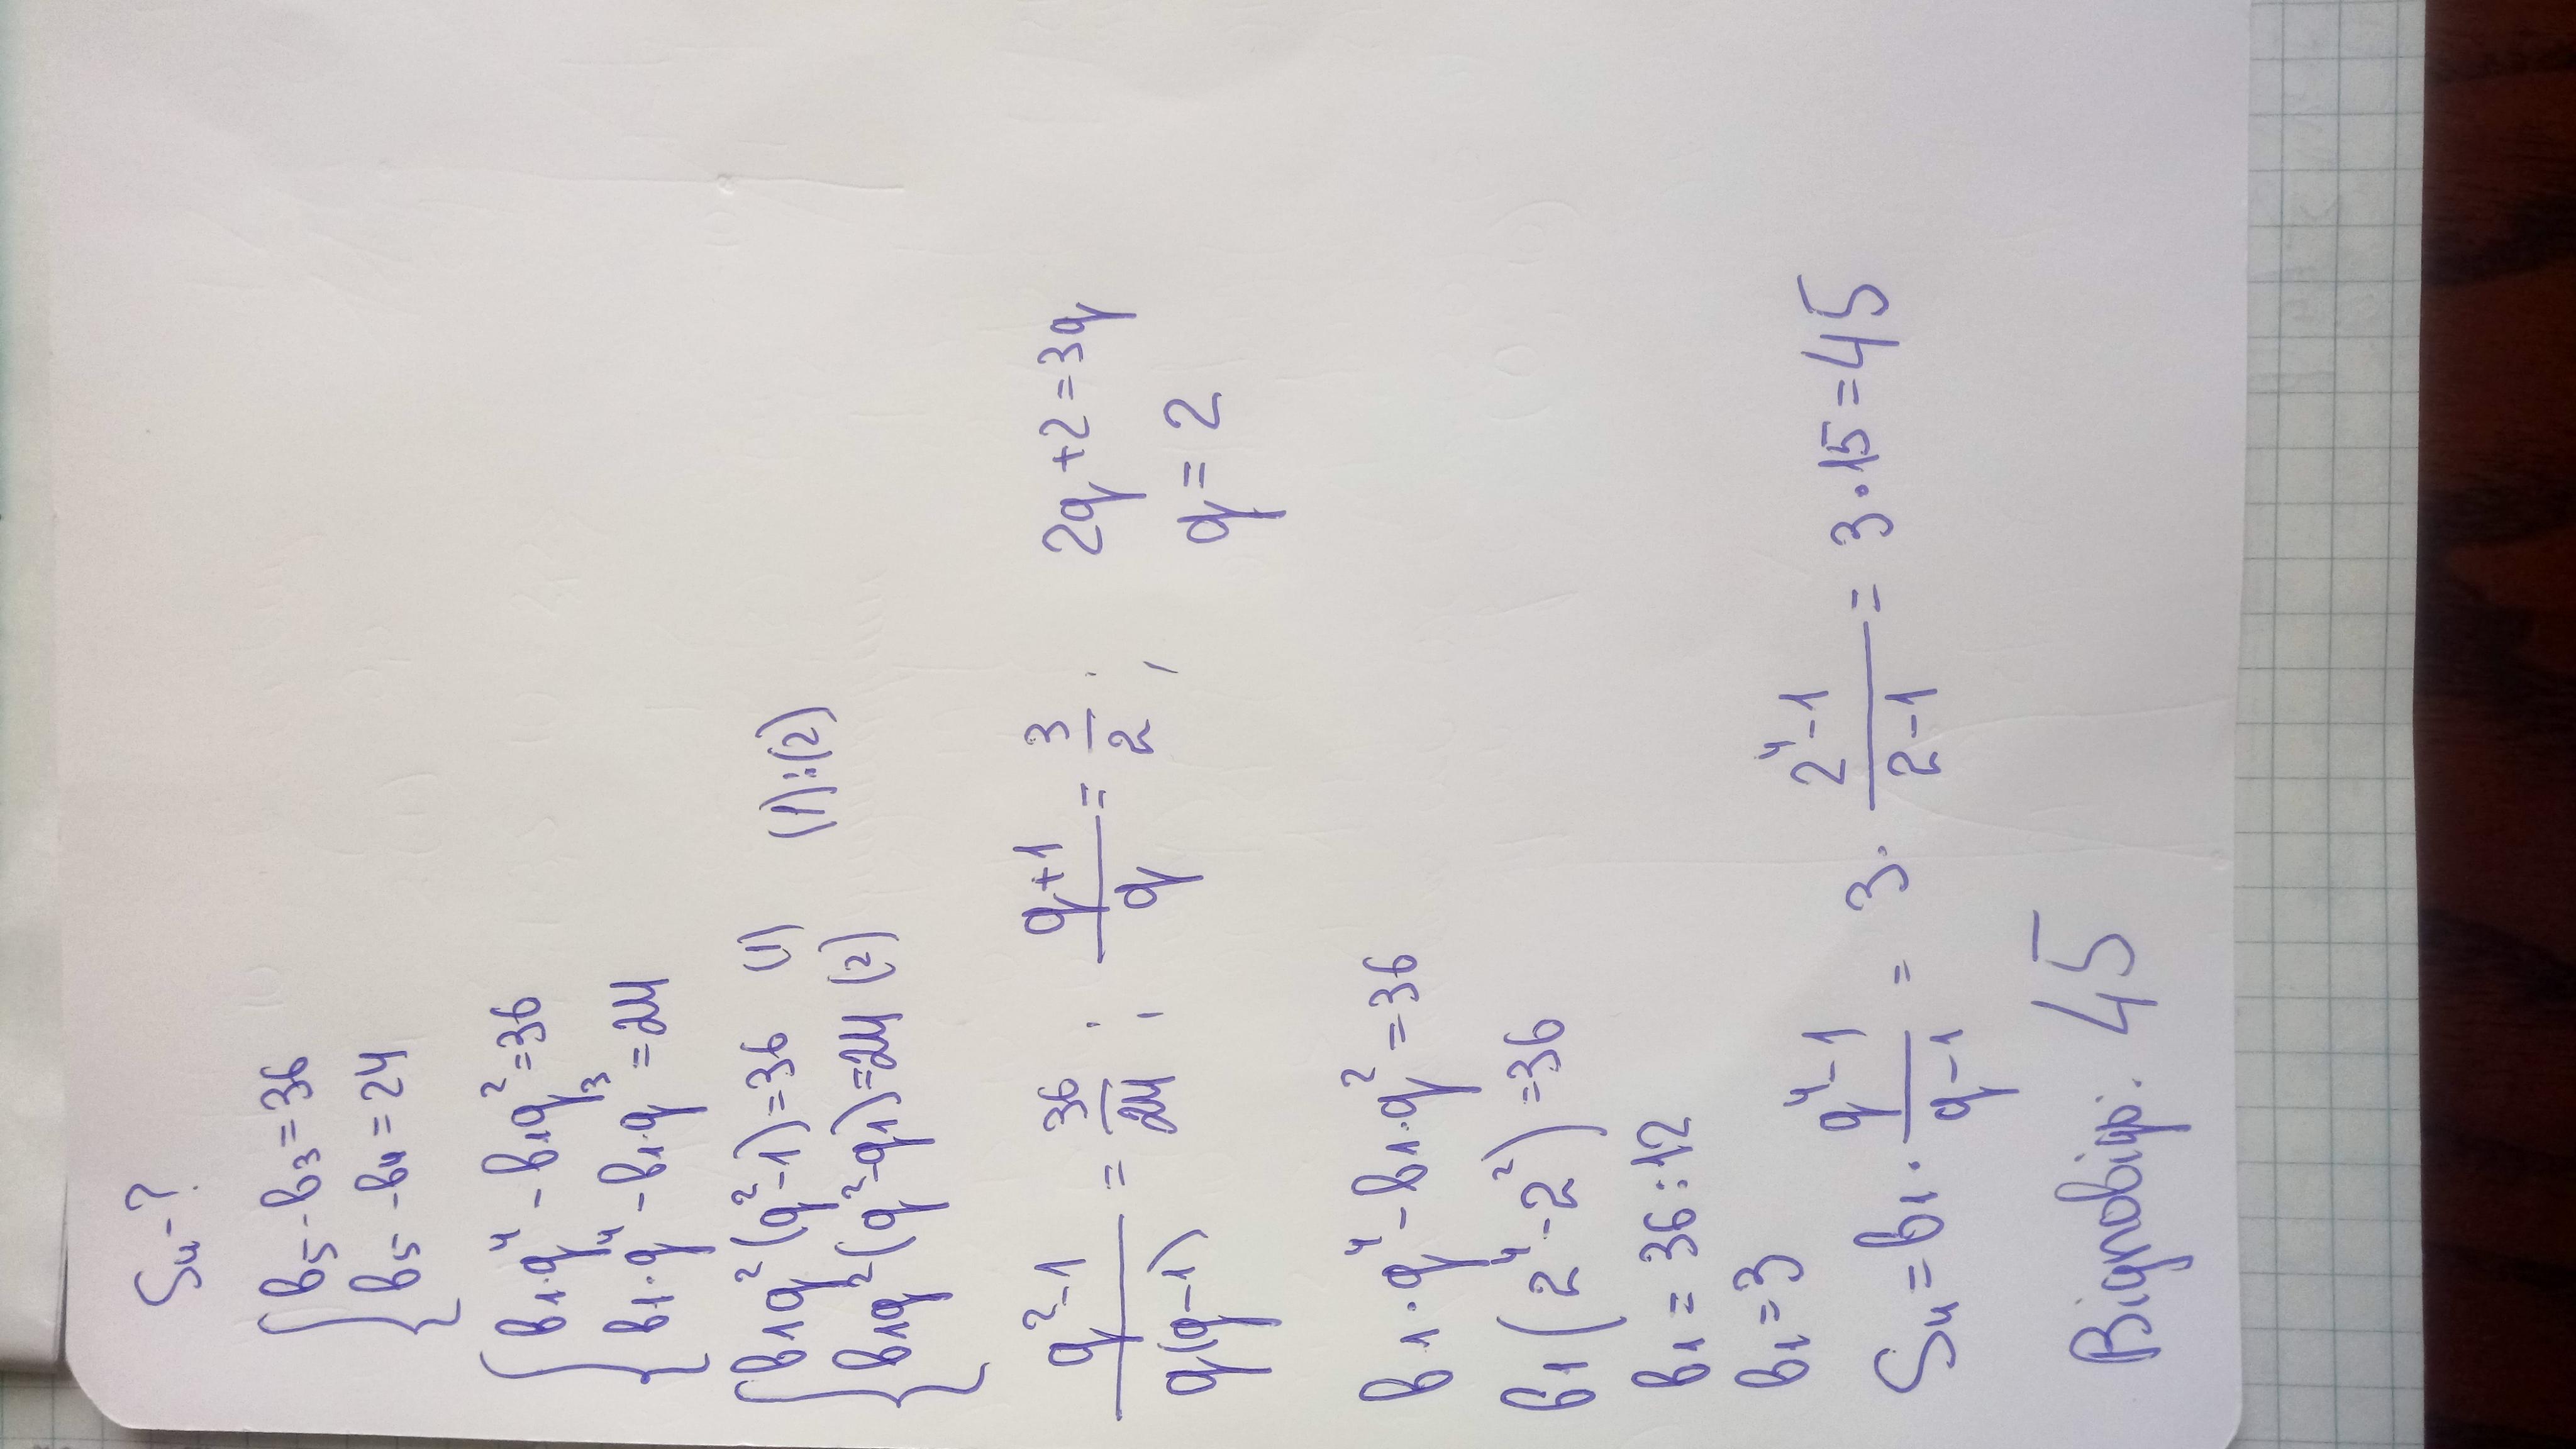 S₄-?
{ b₅-b₃=36
{ b₅-b₄=24
{ b₁·q⁴-b₁q²=36
{ b₁·q⁴-b₁·q³=24
{ b₁q²(q²-1)=36 (1)
{ b₁q²(q²-q)=24 (2) (1):(2)
(q²-1)/(q(q-1)) = 36/24 ; (q+1)/q = 3/2 ; 2q+2=3q
q=2
b₁·q⁴-b₁·q²=36
b₁(2⁴-2²)=36
b₁=36:12
b₁=3
S₄=b₁·(q⁴-1)/(q-1) = 3·(2⁴-1)/(2-1) = 3·15=45
Відповідь: 45